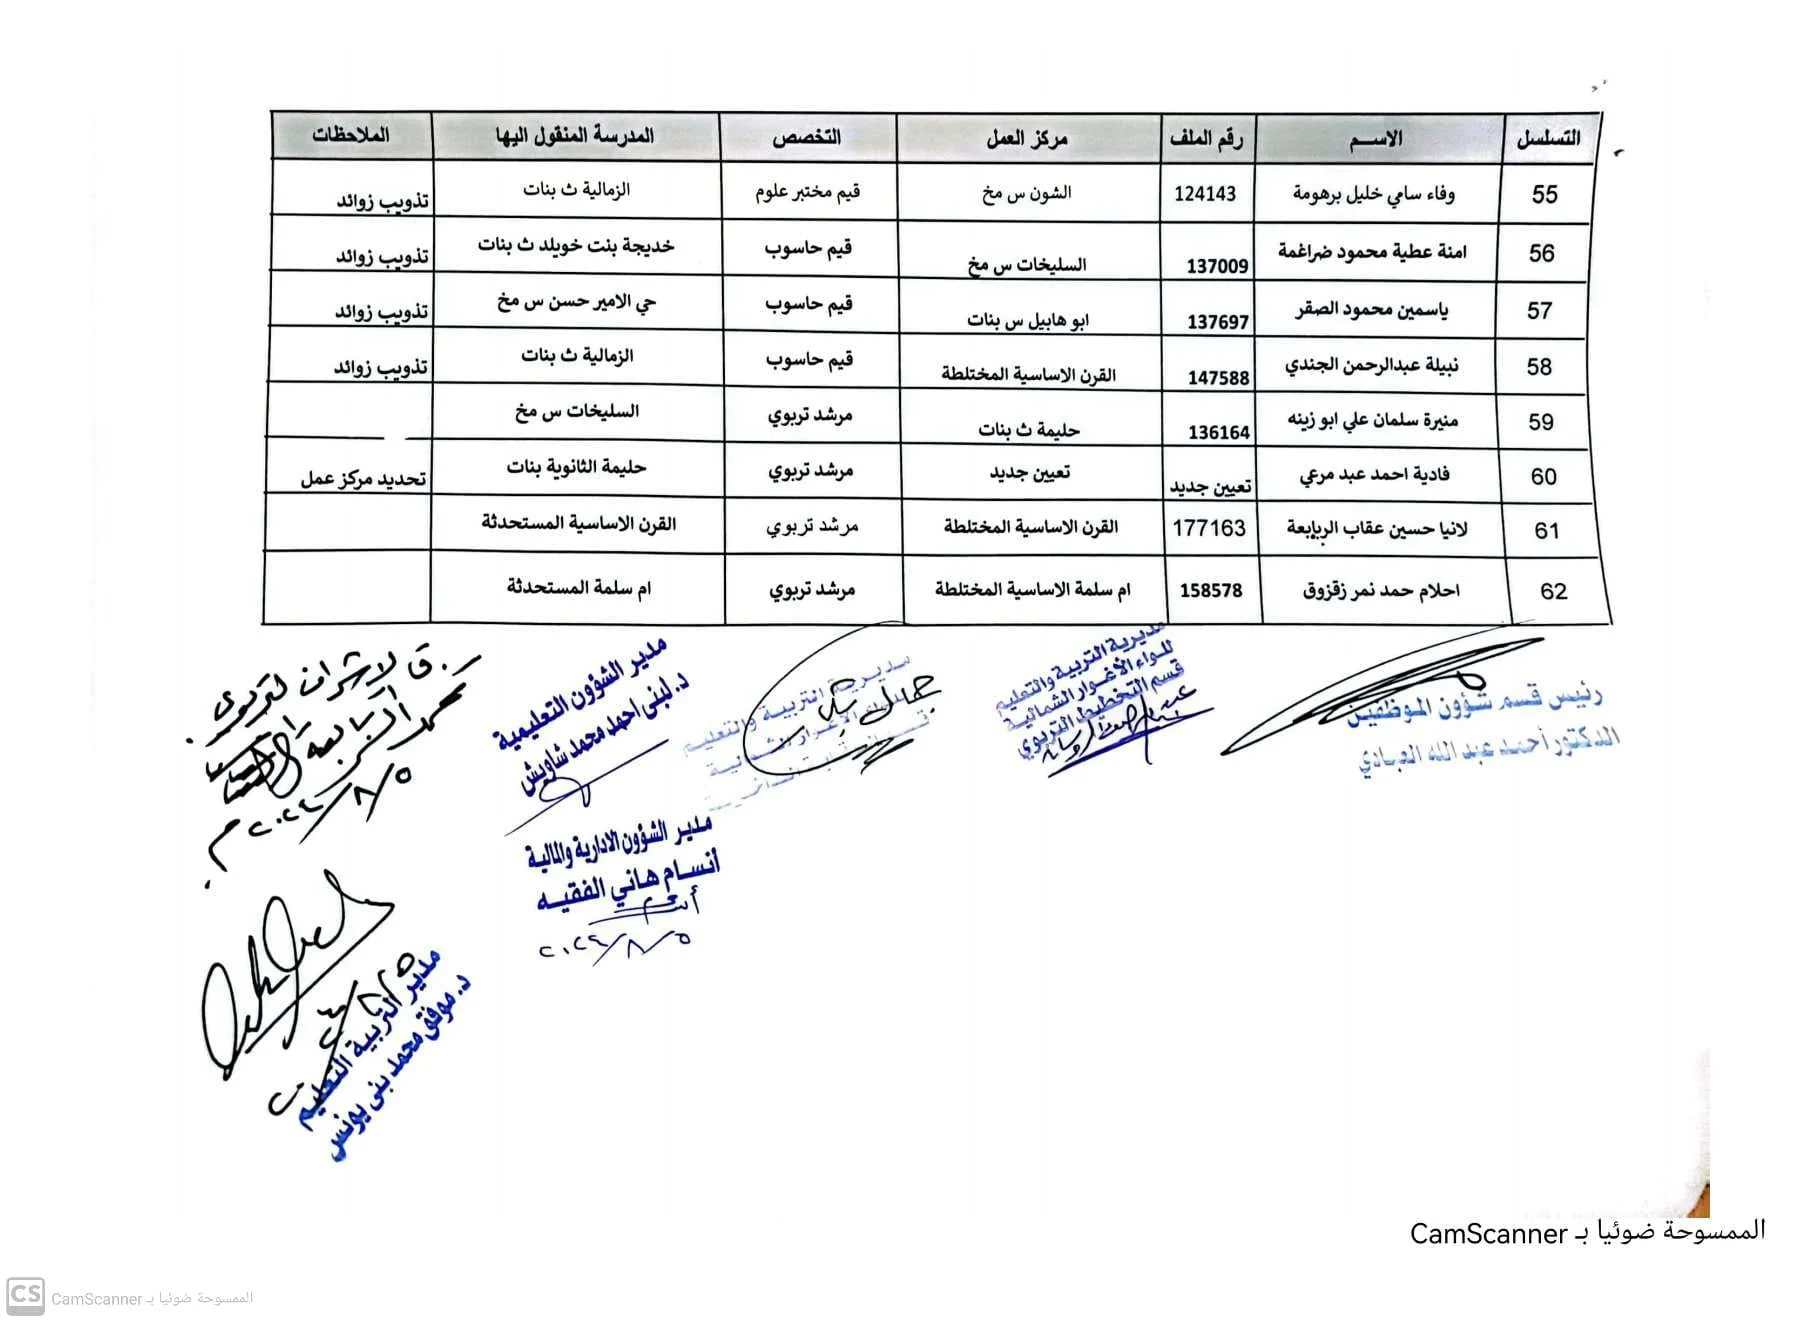 التسلسل الاســم رقم الملف مركز العمل التخصص المدرسة المنقول اليها الملاحظات
55 وفاء سامي خليل برهومة 124143 الشون س مخ قيم مختبر علوم الزمالية ث بنات تذويب زوائد
56 امنة عطية محمود ضراغمة 137009 السليخات س مخ قيم حاسوب خديجة بنت خويلد ث بنات تذويب زوائد
57 ياسمين محمود الصقر 137697 ابو هابيل س بنات قيم حاسوب حي الامير حسن س مخ تذويب زوائد
58 نبيلة عبدالرحمن الجندي 147588 القرن الاساسية المختلطة قيم حاسوب الزمالية ث بنات تذويب زوائد
59 منيرة سلمان علي ابو زينه 136164 حليمة ث بنات مرشد تربوي السليخات س مخ
60 فادية احمد عبد مرعي تعيين جديد تعيين جديد مرشد تربوي حليمة الثانوية بنات تحديد مركز عمل
61 لانيا حسين عقاب الربابعة 177163 القرن الاساسية المختلطة مرشد تربوي القرن الاساسية المستحدثة
62 احلام حمد نمر زقزوق 158578 ام سلمة الاساسية المختلطة مرشد تربوي ام سلمة المستحدثة
رئيس قسم شؤون الموظفين
الدكتور أحمد عبد الله العبادي
مديرية التربية والتعليم
للواء الأغوار الشمالية
قسم التخطيط التربوي
مديرية التربية والتعليم
لواء الأغوار الشمالية
مدير الشؤون التعليمية
د. لبنى احمد محمد شاويش
ق الاشراف التربوي
محمد الربابعة
٢٠٢٤/٨/٥م
مدير الشؤون الادارية والمالية
أنسام هاني الفقيه
٢٠٢٤/٨/٥
مدير التربية والتعليم
د. موفق محمد بني يونس
الممسوحة ضوئيا بـ CamScanner
CS الممسوحة ضوئيا بـ CamScanner